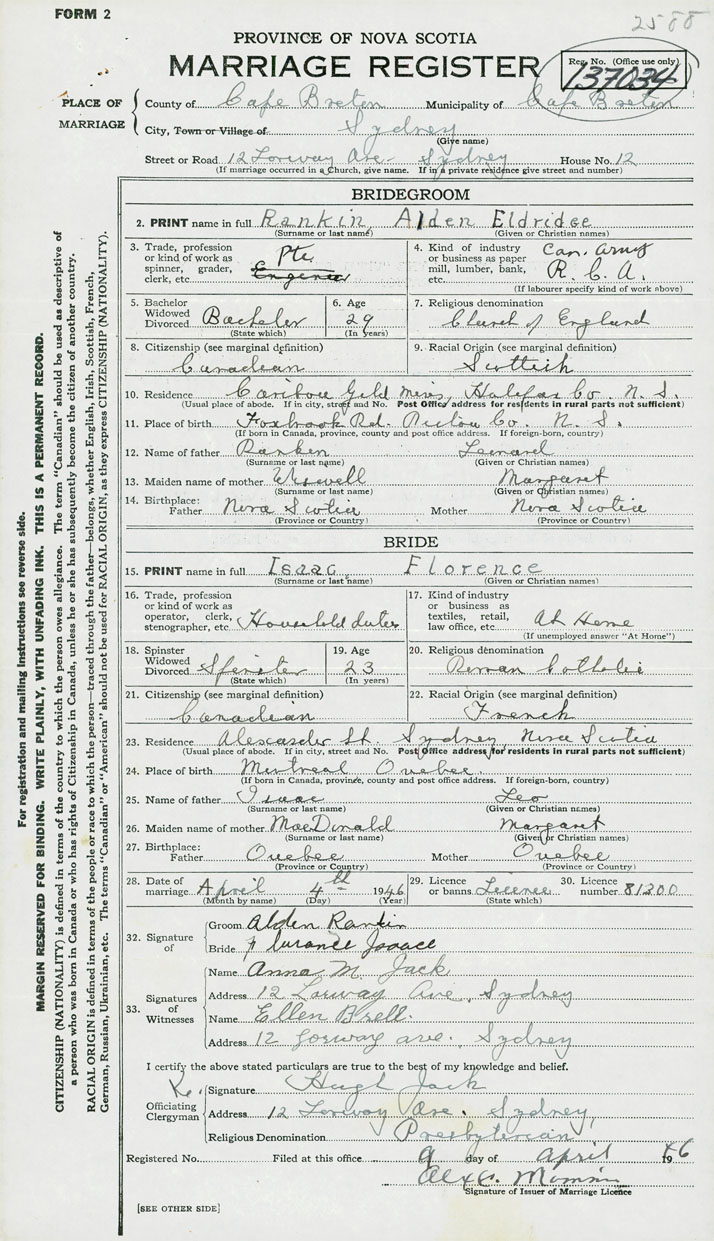 FORM 2
2588
PROVINCE OF NOVA SCOTIA
MARRIAGE REGISTER
Reg. No. (Office use only)
137034
PLACE OF MARRIAGE
County of Cape Breton Municipality of Cape Breton
City, Town or Village of Sydney
(Give name)
Street or Road 12 Lorway Ave. Sydney House No. 12
(If marriage occurred in a Church, give name. If in a private residence give street and number)
BRIDEGROOM
2. PRINT name in full Rankin Alden Eldridge
(Surname or last name) (Given or Christian names)
3. Trade, profession or kind of work as spinner, grader, clerk, etc. Pte
4. Kind of industry or business as paper mill, lumber, bank, etc. Can. Army R. C. A.
(If labourer specify kind of work above)
5. Bachelor Widowed Divorced Bachelor
(State which)
6. Age 29
(In years)
7. Religious denomination
Church of England
8. Citizenship (see marginal definition)
Canadian
9. Racial Origin (see marginal definition)
Scottish
10. Residence Caribou Gold Mines, Halifax Co. N. S.
(Usual place of abode. If in city, street and No. Post Office address for residents in rural parts not sufficient)
11. Place of birth Foxbrook Rd. Pictou Co. N. S.
(If born in Canada, province, county and post office address. If foreign-born, country)
12. Name of father Rankin Leonard
(Surname or last name) (Given or Christian names)
13. Maiden name of mother Margaret
(Surname or last name) (Given or Christian names)
14. Birthplace: Father Nova Scotia Mother Nova Scotia
(Province or Country) (Province or Country)
BRIDE
15. PRINT name in full Isaac Florence
(Surname or last name) (Given or Christian names)
16. Trade, profession or kind of work as operator, clerk, stenographer, etc. Household duties
17. Kind of industry or business as textiles, retail, law office, etc. At Home
(If unemployed answer "At Home")
18. Spinster Widowed Divorced Spinster
(State which)
19. Age 23
(In years)
20. Religious denomination
Roman Catholic
21. Citizenship (see marginal definition)
Canadian
22. Racial Origin (see marginal definition)
French
23. Residence Alexander St. Sydney Nova Scotia
(Usual place of abode. If in city, street and No. Post Office address for residents in rural parts not sufficient)
24. Place of birth Montreal Quebec.
(If born in Canada, province, county and post office address. If foreign-born, country)
25. Name of father Isaac Leo
(Surname or last name) (Given or Christian names)
26. Maiden name of mother MacDonald Margaret
(Surname or last name) (Given or Christian names)
27. Birthplace: Father Quebec Mother Quebec
(Province or Country) (Province or Country)
28. Date of marriage April 4th 1946
(Month by name) (Day) (Year)
29. Licence or banns Licence
(State which)
30. Licence number 81200
32. Signature of
Groom Alden Rankin
Bride Isaac
33. Signatures of Witnesses
Name Anna M. Jack
Address 12 Lorway Ave, Sydney
Name Ellen
Address 12 Lorway Ave. Sydney
I certify the above stated particulars are true to the best of my knowledge and belief.
Officiating Clergyman
Signature Hugh Jack
Address 12 Lorway Ave. Sydney
Religious Denomination Presbyterian
Registered No. Filed at this office 9 day of April 1946
Signature of Issuer of Marriage Licence
[SEE OTHER SIDE]
For registration and mailing instructions see reverse side.
MARGIN RESERVED FOR BINDING. WRITE PLAINLY, WITH UNFADING INK. THIS IS A PERMANENT RECORD.
CITIZENSHIP (NATIONALITY) is defined in terms of the country to which the person owes allegiance. The term "Canadian" should be used as descriptive of
a person who was born in Canada or who has rights of Citizenship in Canada, unless he or she has subsequently become the citizen of another country.
RACIAL ORIGIN is defined in terms of the people or race to which the person—traced through the father—belongs, whether English, Irish, Scottish, French,
German, Russian, Ukrainian, etc. The terms "Canadian" or "American" should not be used for RACIAL ORIGIN, as they express CITIZENSHIP (NATIONALITY).